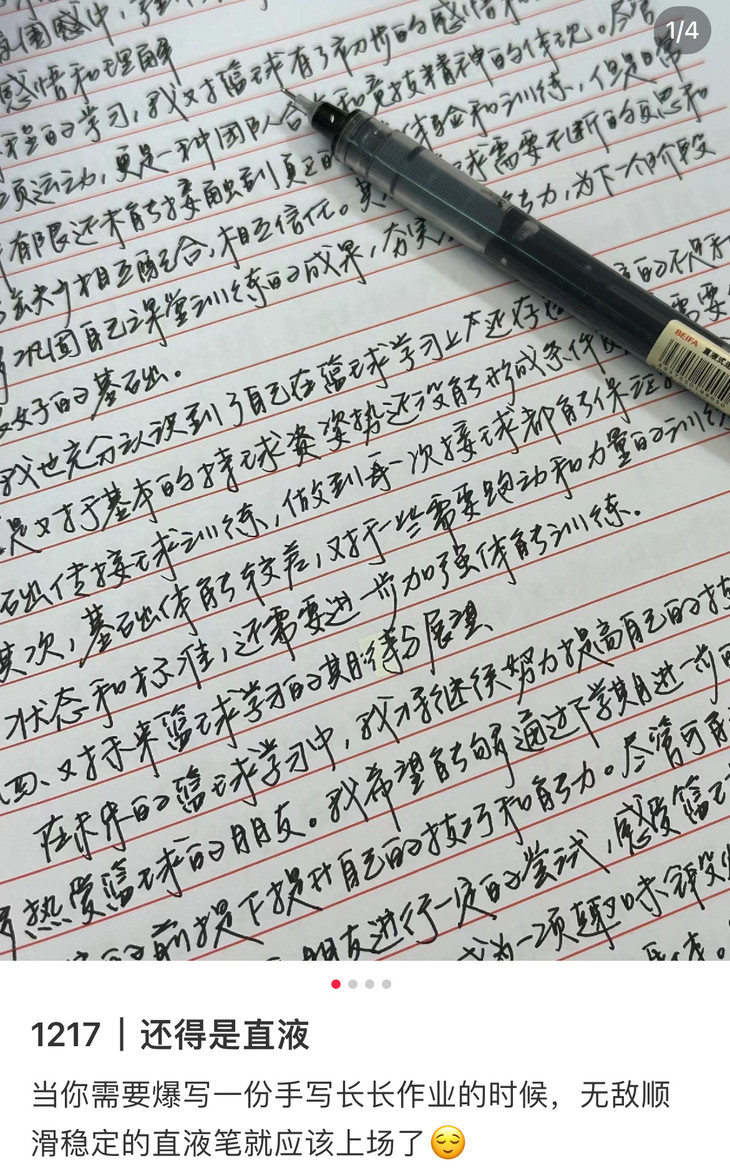 1/4
感悟和理解
程的学习,我又对篮球有了初步的感悟和
项运动,更是一种团队合作和竞技精神的体现。尽管
有限还未有能接触到真正的 体验和训练,但是日常
缺少相互配合,相互信任。其 球需要不断的反思和
巩固自己课堂训练的成果,夯实 能力,为下一个阶段
好的基础。
我也充分认识到了自己在篮球学习上还存 的不足和
是对于基本的持球资姿势还没有形成条件 需要
础传接球训练,做到每一次接球都能保证
其次,基础体能较差,对于一些需要跑动和力量的训练
状态和标准,还需要进一步加强体能训练.
四、对未来篮球学习的期待与展望
在未来的篮球学习中,我将继续努力提高自己的技
热爱篮球的朋友。我希望能够通过下学期进一步的
的前提下提升自己的技巧和能力。尽管可能
朋友进行一定的尝试,感受篮球
成为一项
BEIFA
直液式
1217｜还得是直液
当你需要爆写一份手写长长作业的时候，无敌顺
滑稳定的直液笔就应该上场了😌